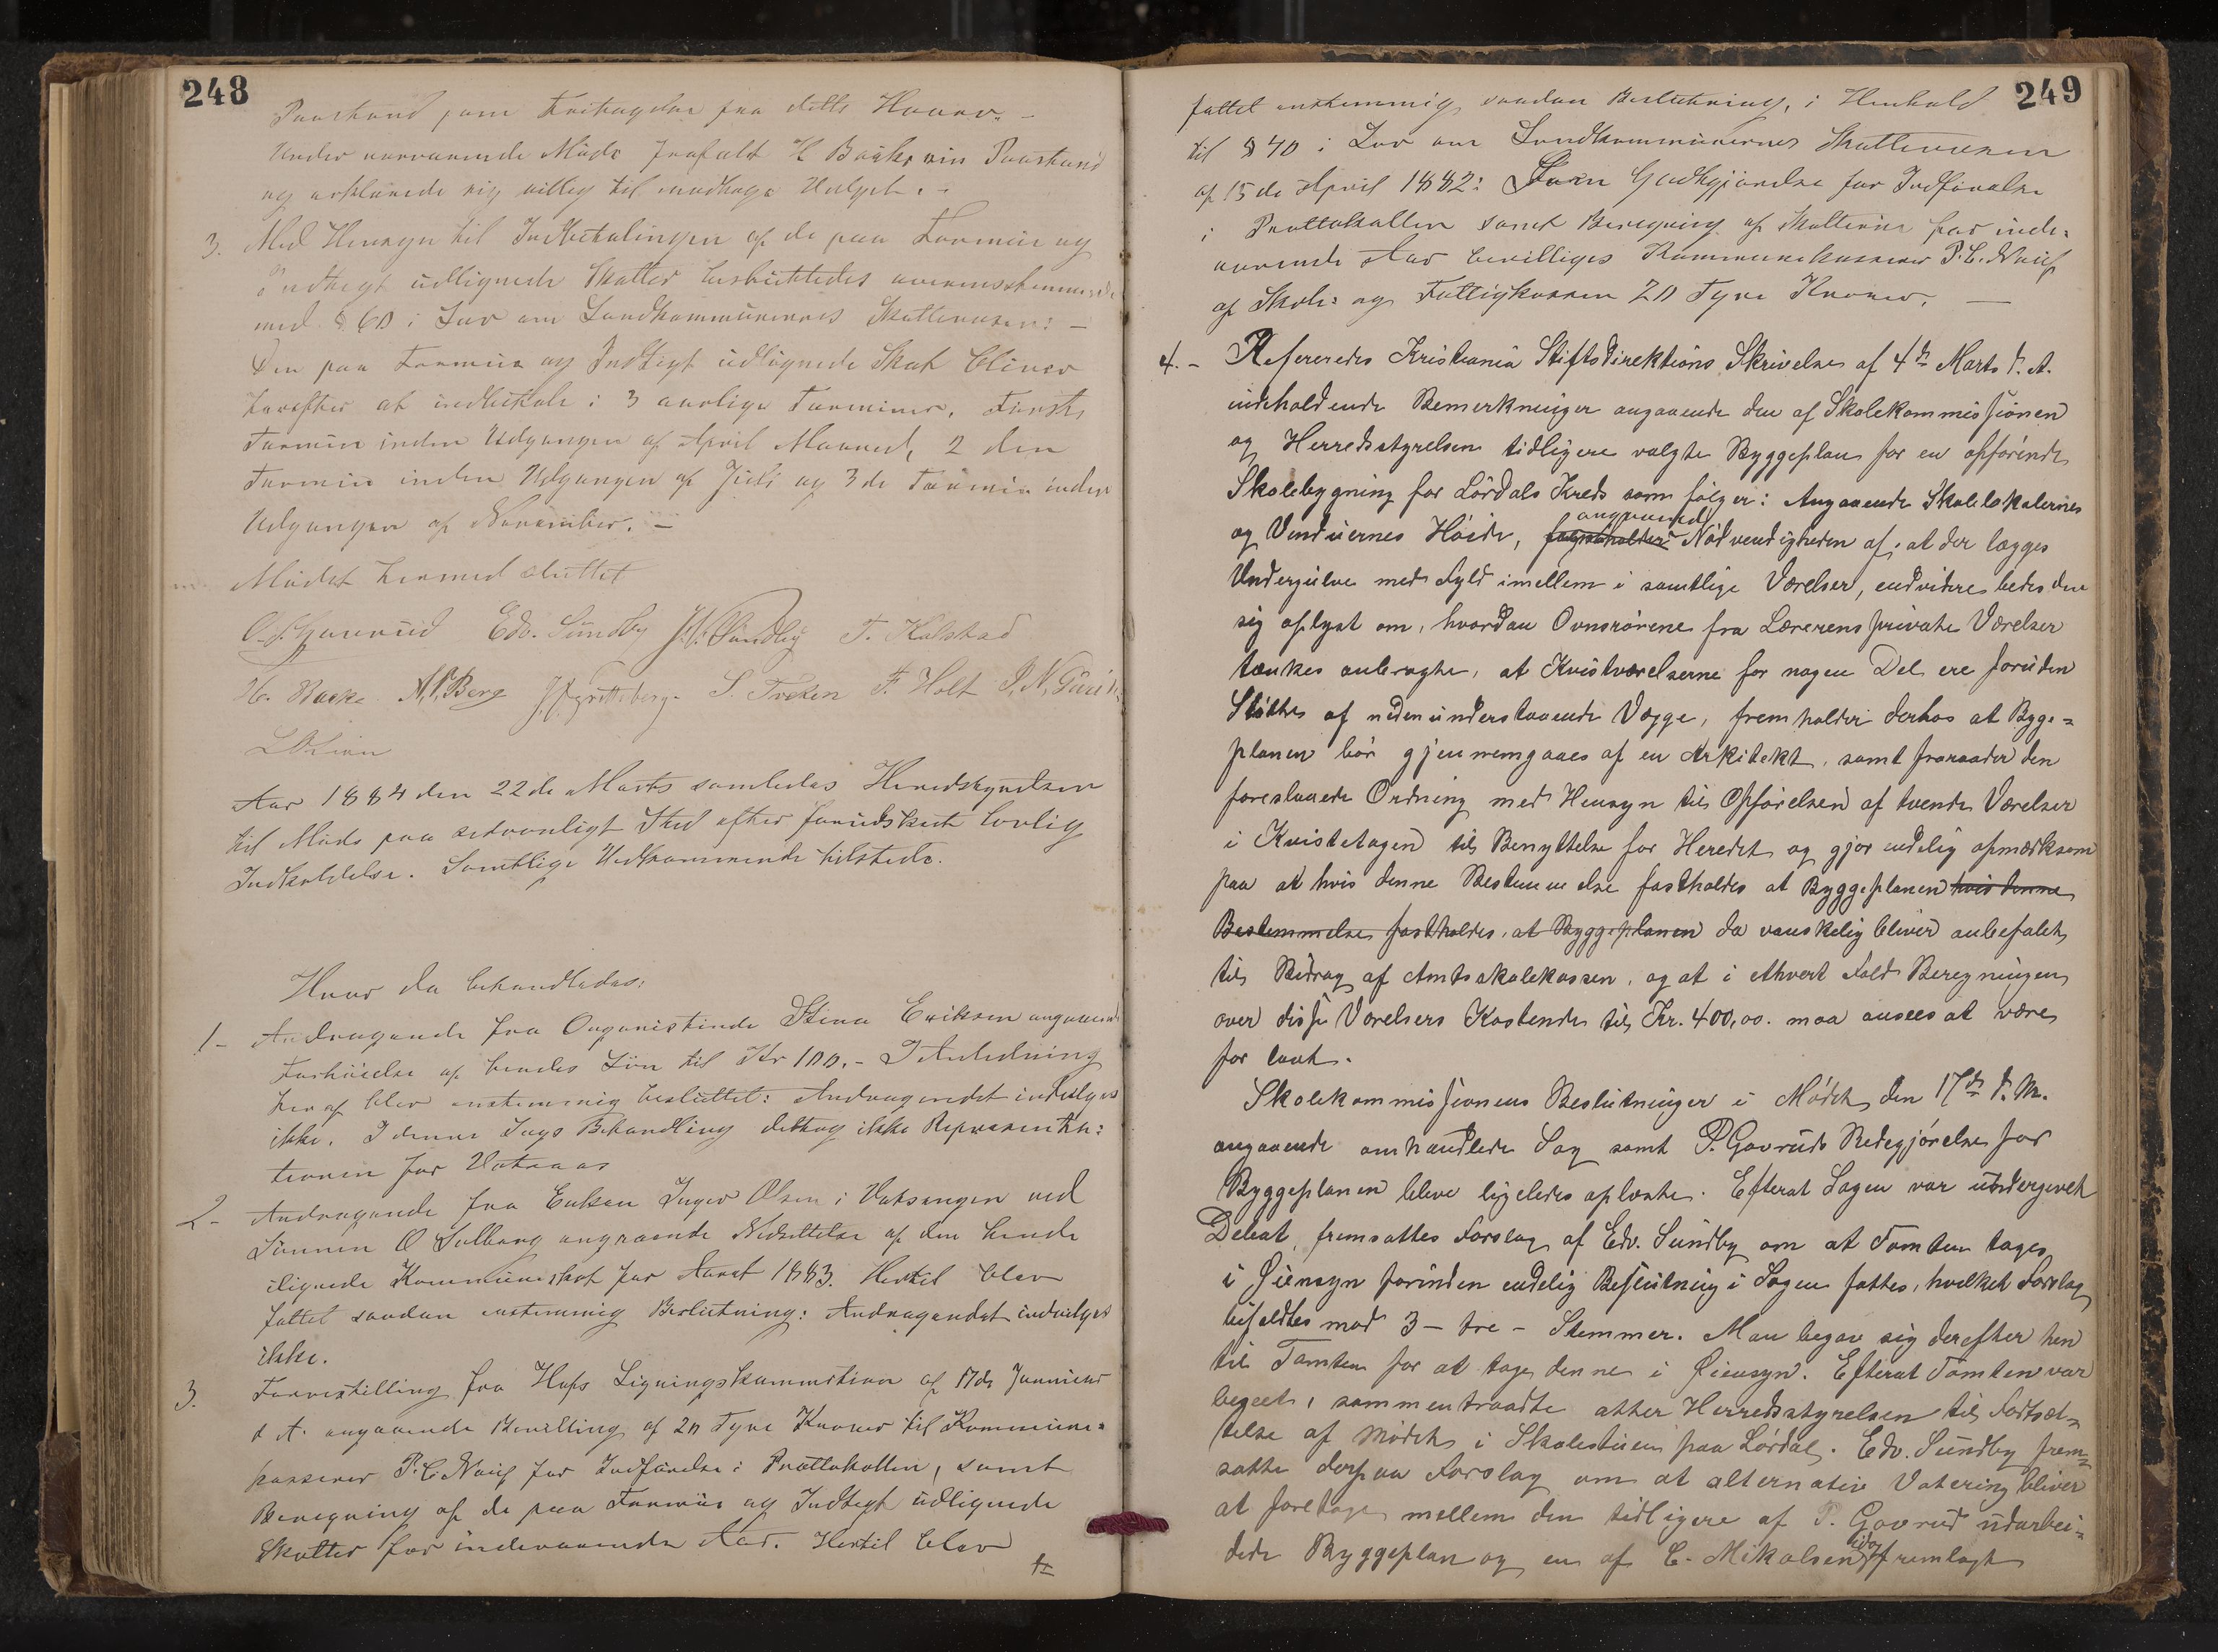 248
Paastand som Fritagelse fra dette Hverv. -
Under nærværende Møde frafaldt H Baske sin Paastand
og erklærede sig villig til modtage Valget. -
3. Med Hensyn til Indbetalingen af de paa Formue og
Indtægt udlignede Skatter besluttedes overensstemmende
med § 60 i Lov om Landkommunernes Skattevæsen: -
Den paa Formue og Indtægt udlignede Skat bliver
herefter at indbetale i 3 aarlige Terminer, Første
Termin inden Udgangen af April Maaned, 2 den
Termin inden Udgangen af Juli og 3 de Termin inden
Udgangen af November. -
Mødet hermed sluttet
Edv. Sundby T. Kolstad
H. Baske A. P. Berg S. Tveten F. Holt
Aar 1884 den 22 de Marts samledes Herredstyrelsen
til Møde paa sedvanligt Sted efter forudskeet lovlig
Indkaldelse. Samtlige Vedkommende tilstede.
Hvor da behandledes:
1- Andragende fra Organistinde Stina Eriksen angaaende
Forhøielse af hendes Løn til Kr 100. - I Anledning
heraf blev enstemmig besluttet: Andragendet indvilges
ikke. I denne Sags Behandling deltog ikke Repræsentan=
tionen for
2- Andragende fra Enken Inger Olsen i ved
Sønnen O Solberg angaaende Nedsettelse af den hende
ilignede Kommuneskat for Aaret 1883. Hertil blev
fattet saadan enstemmig Beslutning: Andragendet indvilges
ikke.
3. Forestilling fra Hofs Ligningskommission af 17 de Januar
d A. angaaende Bevilling af 20 Tyve Kroner til Kommune=
kasserer P. C. for Indførelse i Prottokollen, samt
Beregning af de paa Formue og Indtægt udlignede
Skatter for indeværende Aar. Hertil blev
249
fattet enstemmig saadan Beslutning, i Henhold
til § 40 i Lov om Landkommunernes Skattevæsen
af 15 de April 1882: Som Godtgjørelse for Indførelse
i Prottokollen samt Beregning af Skatterne for inde=
værende Aar bevilliges Kommunekasserer P. C.
af Skole= og Fattigkassen 20 Tyve Kroner. -
4. - Refereredes Kristiania Stiftsdirektions Skrivelse af 4de Marts d. A.
indeholdende Bemerkninger angaaende den af Skolekommissionen
og Herredsstyrelsen tidligere valgte Byggeplan for en opførende
Skolebygning for Lørdals Kreds som følger: Angaaende Skolelokalernes
og Vinduernes Høide, angaaende Nødvendigheden af, at der lægges
Undergulve med Fyld imellem i samtlige Værelser, endvidere bedes den
sig oplyst om, hvordan Ovnsrørene fra Lærerens private Værelser
tænkes anbragte, at Kvistværelserne for nogen Del ere foruden
Støtte af nedenunderstaaende Vægge, fremholder derhos at Bygge=
planen bør gjennemgaaes af en Arkitekt, samt fraraader den
foreslaaede Ordning med Hensyn til Opførelsen af tvende Værelser
i Kvistetagen til Benyttelse for Heredet og gjør endelig opmærksom
paa at hvis denne Bestemmelse fastholdes at Byggeplanen hvis denne
Bestemmelse fastholdes, at Byggeplanen da vanskelig bliver anbefalet
til Bidrag af Amtsskolekassen, og at i ethvert Fald Beregningen
over disse Værelsers Kostende til Kr. 400,00. maa ansees at være
for lavt.
Skolekommissionens Beslutninger i Mødet den 17de d. M.
angaaende omhandlede Sag samt P. Gavruds Redegjørelse for
Byggeplanen bleve ligeledes oplæste. Efterat Sagen var undergivet
Debat, fremsattes Forslag af Edv. Sundby om at Tomten tages
i Øiensyn forinden endelig Beslutning i Sagen fattes, hvilket Forslag
bifaldtes mod 3 - tre - Stemmer. Man begav sig derefter hen
til Tomten for at tage denne i Øiensyn. Efterat Tomten var
beseet, sammentraadte atter Herredsstyrelsen til Fortsæt=
telse af Mødet i Skolestuen paa Lørdal. Edv. Sundby frem=
satte derpaa Forslag om at alternativ Votering bliver
at foretage mellem den tidligere af P. Gavrud udarbei=
dede Byggeplan og en af C. Mikalsen idag fremlagt